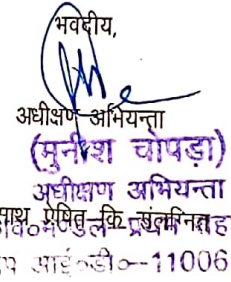 भवदीय,
अधीक्षण अभियन्ता
(मुनीश चोपड़ा)
अधीक्षण अभियन्ता
साथ प्रेषित कि
आई०डी०--11006